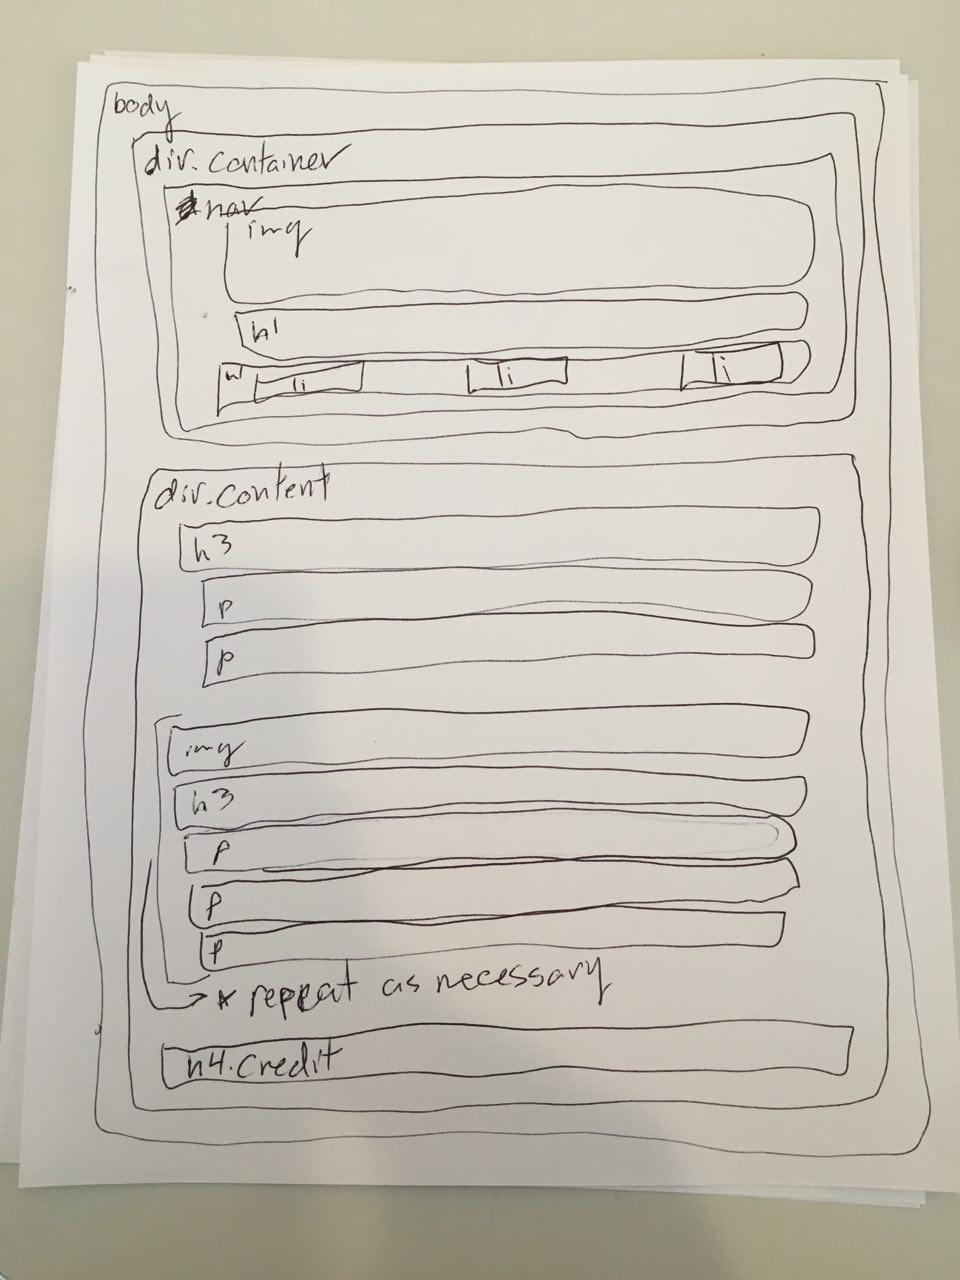 body
div.container
nav
img
h1
ul li li li
div.content
h3
p
p
img
h3
p
p
p
* repeat as necessary
h4.credit